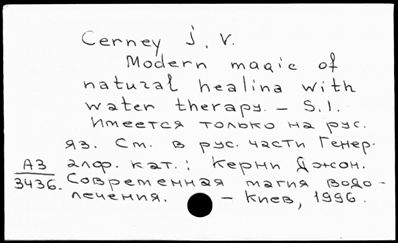 Cerney J. V.
Modern magic of
natural healing with
water therapy. – S.l.
Имеется только на рус.
яз. См. в рус. части Генер.
алф. кат.: Керни Джон.
АЗ
3436.
Современная магия водо-
лечения. – Киев, 1996.